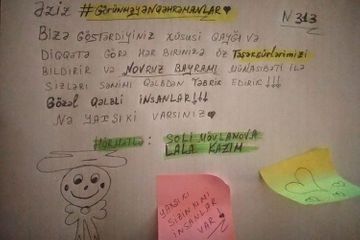 Əziz #GÖRÜNMƏYƏNQƏHRƏMANLAR
N 313
BİZƏ GÖSTƏRDİYİNİZ XÜSUSİ QAYĞI VƏ
DİQQƏTƏ GÖRƏ HƏR BİRİNİZƏ ÖZ TƏŞƏKKÜRLƏRİMİZİ
BİLDİRİR VƏ NOVRUZ BAYRAMI MÜNASİBƏTİ İLƏ
SİZLƏRİ SƏMİMİ QƏLBDƏN TƏBRİK EDİRİK!!!
GÖZƏL QƏLBLİ İNSANLAR!!!
NƏ YAXŞI Kİ VARSINIZ
HÖRMƏTLƏ: SOLİ MÖVLANOVA
LALA KAZIM
YAXŞI Kİ
SİZİN KİMİ
İNSANLAR
VAR!